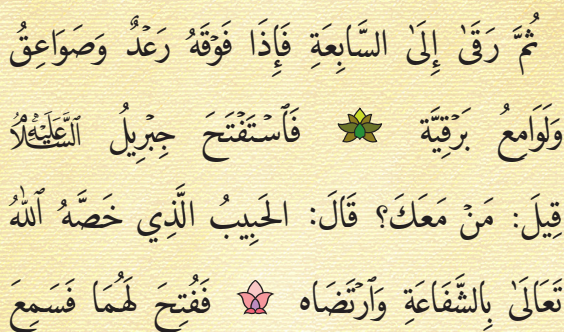 ثُمَّ رَقَىٰ إِلَىٰ السَّابِعَةِ فَإِذَا فَوْقَهُ رَعْدٌ وَصَوَاعِقُ
وَلَوَامِعُ بَرْقِيَّة فَٱسْتَفْتَحَ جِبْرِيلُ عَلَيْهِ ٱلسَّلَامُ
قِيلَ: مَنْ مَعَكَ؟ قَالَ: الحَبِيبُ الَّذِي خَصَّهُ ٱللهُ
تَعَالَىٰ بِالشَّفَاعَةِ وَٱرْتَضَاه فَفُتِحَ لَهُمَا فَسَمِعَ